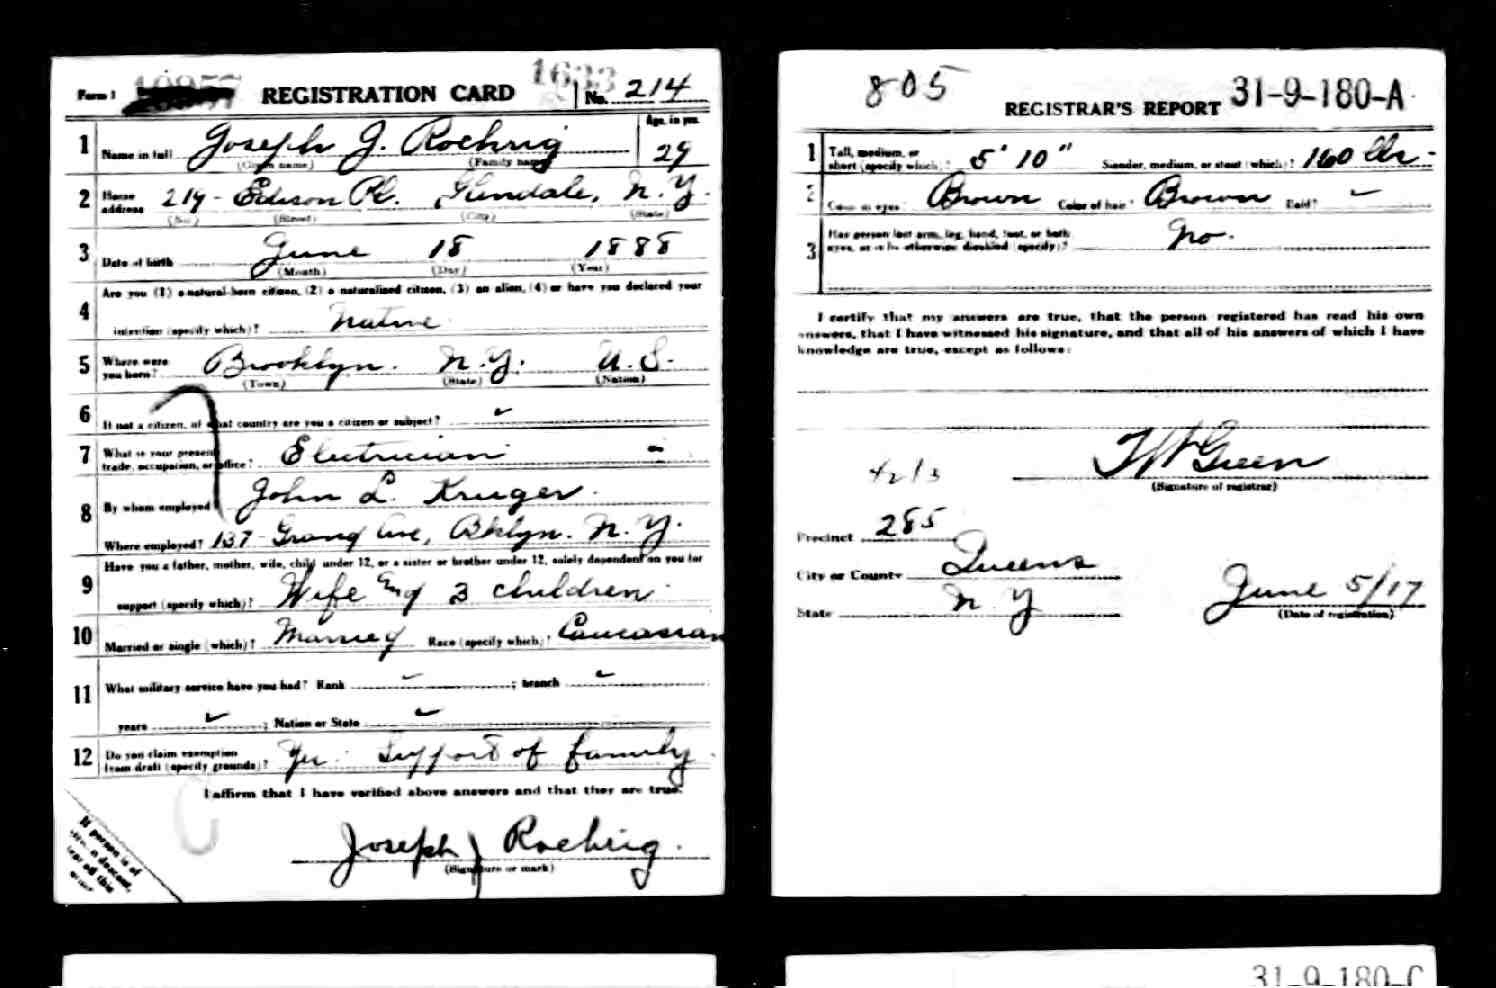 Form 1 REGISTRATION CARD 1633 No. 214
1 Name in full Joseph J. Roehrig (Given name) (Family name) Age, in yrs. 29
2 Home address 219 - Edison Pl. Glendale, N.Y. (No.) (Street) (City) (State)
3 Date of birth June 18 1888 (Month) (Day) (Year)
4 Are you (1) a natural-born citizen, (2) a naturalized citizen, (3) an alien, (4) or have you declared your
intention (specify which)? Native
5 Where were you born? Brooklyn. N.Y. U.S. (Town) (State) (Nation)
6 If not a citizen, of what country are you a citizen or subject?
7 What is your present trade, occupation, or office? Electrician
8 By whom employed John L. Kruger.
Where employed? 137 - Grand Ave, Bklyn. N.Y.
9 Have you a father, mother, wife, child under 12, or a sister or brother under 12, solely dependent on you for
support (specify which)? Wife and 3 children
10 Married or single (which)? Married Race (specify which)? Caucasian
11 What military service have you had? Rank ; branch
years ; Nation or State
12 Do you claim exemption from draft (specify grounds)? Yes. Support of family.
I affirm that I have verified above answers and that they are true.
Joseph J Roehrig.
(Signature or mark)
If person is of
805 REGISTRAR'S REPORT 31-9-180-A
1 Tall, medium, or short (specify which)? 5' 10" Slender, medium, or stout (which)? 160 lbs -
2 Color of eyes? Brown Color of hair? Brown Bald?
3 Has person lost arm, leg, hand, foot, or both eyes, or is he otherwise disabled (specify)? No.
I certify that my answers are true, that the person registered has read his own
answers, that I have witnessed his signature, and that all of his answers of which I have
knowledge are true, except as follows:
Green
(Signature of registrar)
Precinct 285
City or County Queens
State N Y
June 5/17
(Date of registration)
31-9-180-C